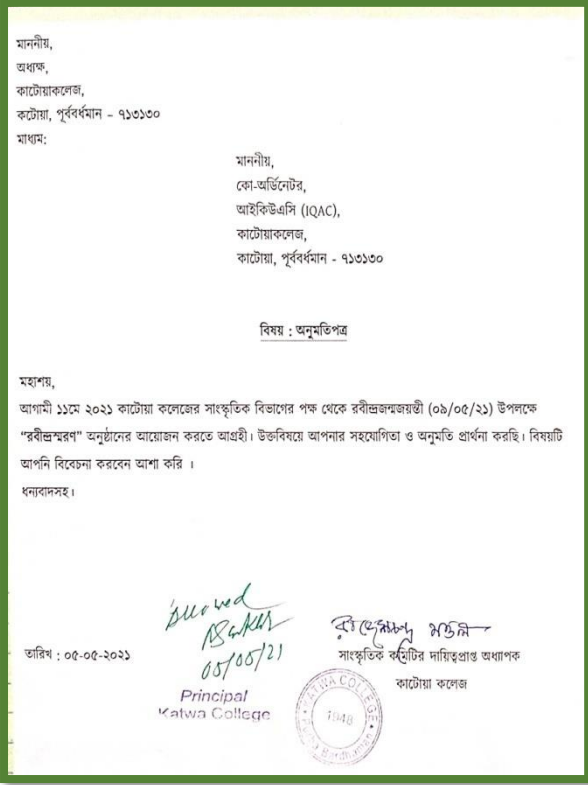 মাননীয়,
অধ্যক্ষ,
কাটোয়াকলেজ,
কটোয়া, পূর্ববর্ধমান – ৭১৩১৩০
মাধ্যম:
মাননীয়,
কো-অর্ডিনেটর,
আইকিউএসি (IQAC),
কাটোয়াকলেজ,
কাটোয়া, পূর্ববর্ধমান - ৭১৩১৩০
বিষয় : অনুমতিপত্র
মহাশয়,
আগামী ১১মে ২০২১ কাটোয়া কলেজের সাংস্কৃতিক বিভাগের পক্ষ থেকে রবীন্দ্রজন্মজয়ন্তী (০৯/০৫/২১) উপলক্ষে
“রবীন্দ্রস্মরণ” অনুষ্ঠানের আয়োজন করতে আগ্রহী। উক্তবিষয়ে আপনার সহযোগিতা ও অনুমতি প্রার্থনা করছি। বিষয়টি
আপনি বিবেচনা করবেন আশা করি ।
ধন্যবাদসহ।
Allowed
05/05/21
Principal
Katwa College
তারিখ : ০৫-০৫-২০২১
সাংস্কৃতিক কমিটির দায়িত্বপ্রাপ্ত অধ্যাপক
কাটোয়া কলেজ
KATWA COLLEGE
1948
Purba Bardhaman